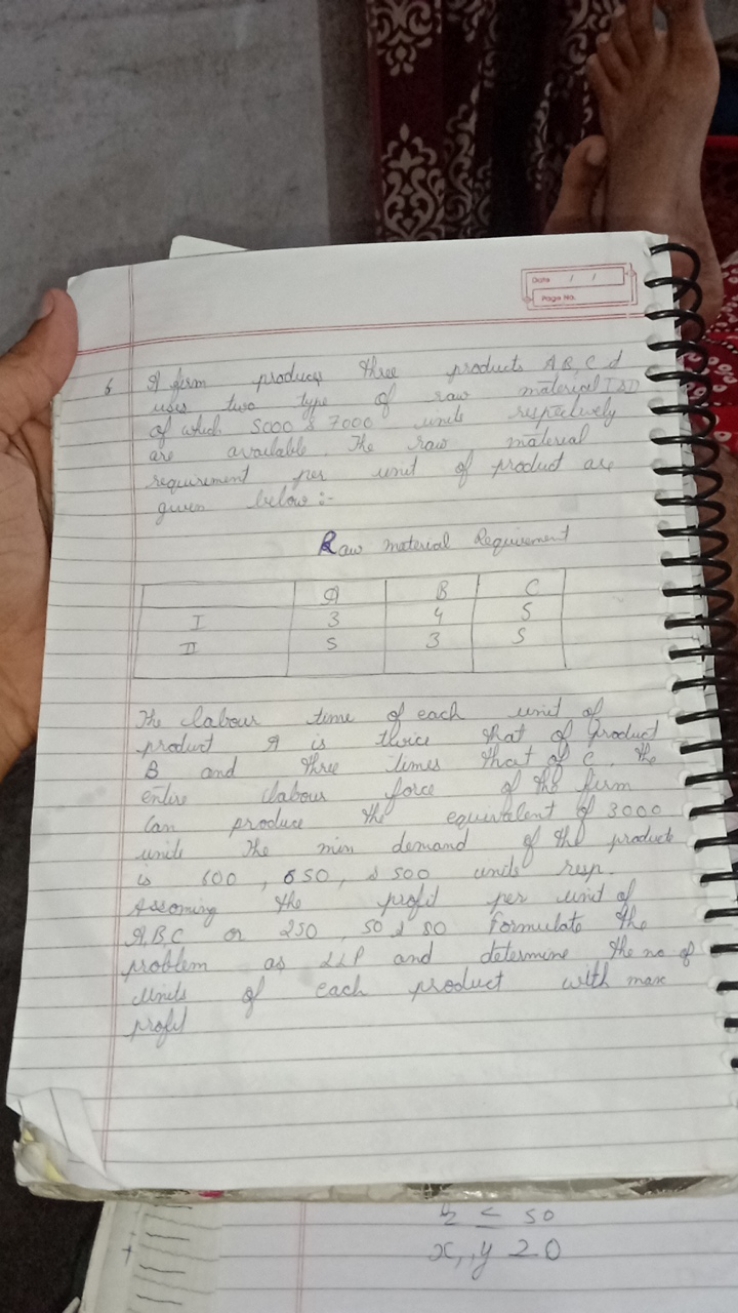 Date / /
Page No.
6 A firm produces three products A B, C d
uses two type of raw material I & II
of which 5000 & 7000 units respectively
are available. The raw material
requirement per unit of product are
given below :-
Raw material Requirement
A B C
I 3 4 5
II 5 3 5
The labour time of each unit of
product A is twice that of product
B and three times that of C. The
entire labour force of the firm
can produce the equivalent of 3000
units The min demand of the products
is 600, 650, & 500 units resp.
Assoming the profit per unit of
A, B, C or 250, 50 & 80 Formulate the
problem as LLP and determine the no of
Units of each product with max
profit
≤ 50
x, y 20